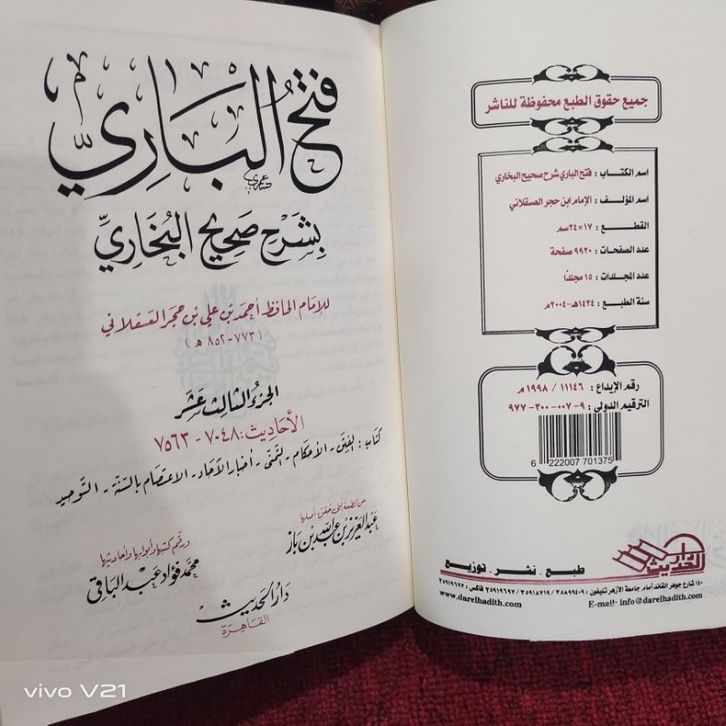 جميع حقوق الطبع محفوظة للناشر
اسم الكتاب : فتح الباري شرح صحيح البخاري
اسم المؤلف : الإمام ابن حجر العسقلاني
القطع : ١٧×٢٤سم
عدد الصفحات : ٩٩٢٠ صفحة
عدد المجلدات : ١٥ مجلدًا
سنة الطبع : ١٤٢٤هـ-٢٠٠٤م
رقم الإيداع : ١١١٤٦ / ١٩٩٨ م
الترقيم الدولي : ٩-٠٠٧-٣٠٠-٩٧٧
6 222007 701375
دار الحديث
طبع . نشر . توزيع
١٤٠ شارع جوهر القائد أمام جامعة الأزهر تليفون : ٢٥٨٩٩٤٠٩١ / ٢٥٩١٨٧١٩ فاكس : ٢٥٩١٩٦٩٧
www.darelhadith.com E-mail- info@darelhadith.com
فتح الباري
بشرح صحيح البخاري
للإمام الحافظ أحمد بن علي بن حجر العسقلاني
(٧٧٣-٨٥٢ هـ)
الجزء الثالث عشر
الأحاديث: ٧٠٤٨ - ٧٥٦٣
كتاب : الفتن - الأحكام - التمني - أخبار الآحاد - الاعتصام بالسنة - التوحيد
عبد العزيز بن عبد الله بن باز
ورقم كتبها وأبوابها وأحاديثها
محمد فؤاد عبد الباقي
دار الحديث
القاهرة
vivo V21